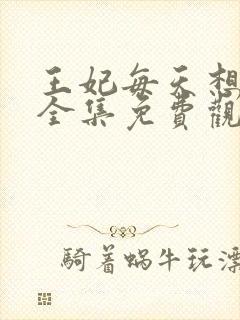 王妃每天想
全集免費觀
騎着蝸牛玩漂